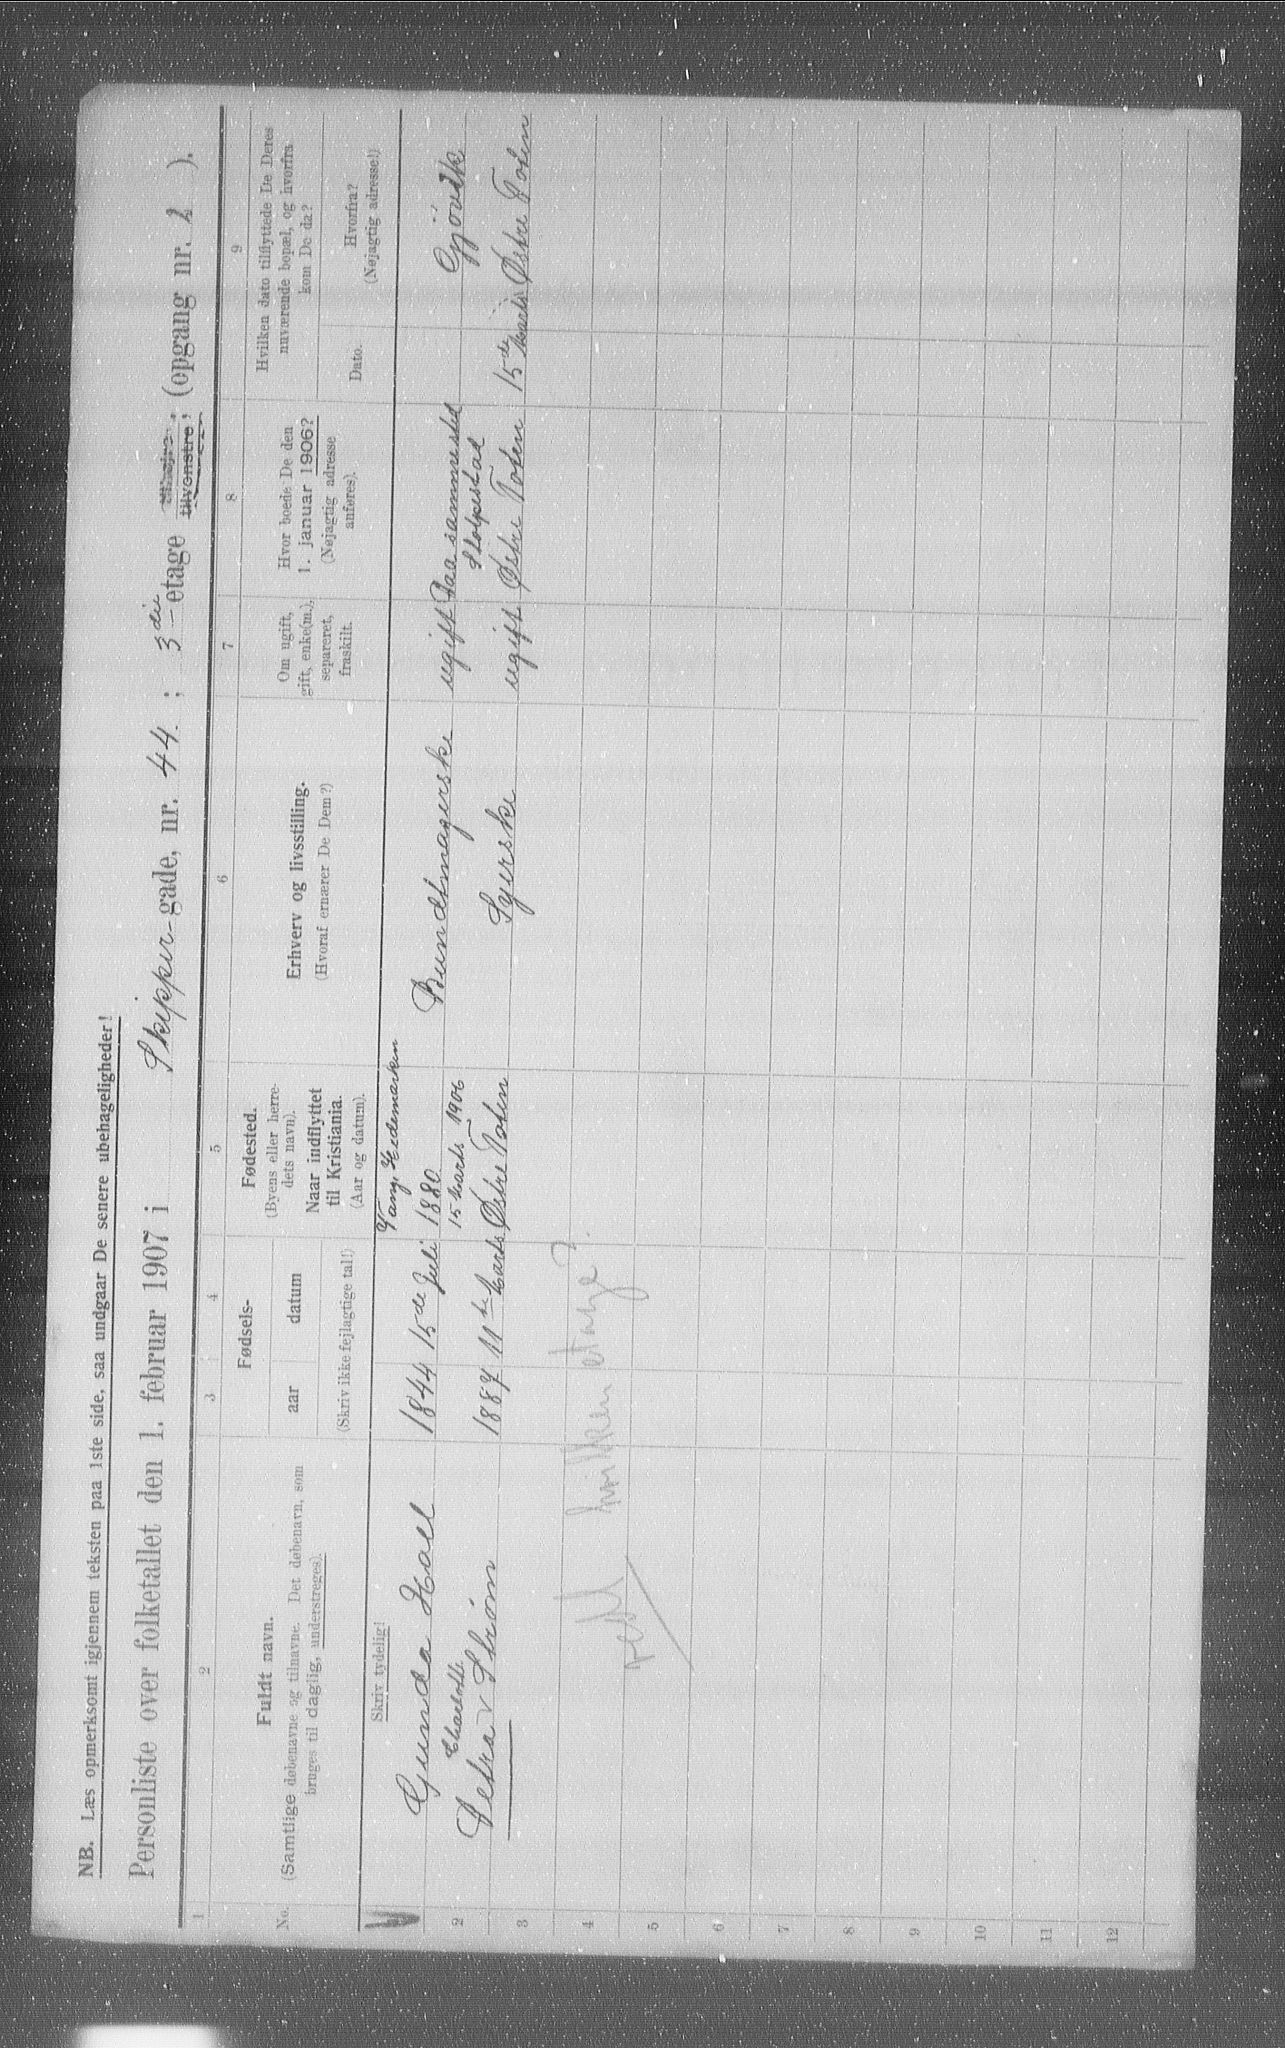 NB. Læs opmerksomt igjennem teksten paa 1ste side, saa undgaar De senere ubehageligheder!
Personliste over folketallet den 1. februar 1907 i Skipper-gade, nr. 44. ; 3die -etage tilvenstre, (opgang nr. 2 ).
1 2 3 4 5 6 7 8 9
No.
Fuldt navn.
(Samtlige døbenavne og tilnavne. Det døbenavn, som
bruges til daglig, understreges).
Fødsels-
aar datum
(Skriv ikke fejlagtige tal!)
Fødested.
(Byens eller herre-
dets navn).
Naar indflyttet
til Kristiania.
(Aar og datum).
Erhverv og livsstilling.
(Hvoraf ernærer De Dem?)
Om ugift,
gift, enke(m.),
separeret,
fraskilt.
Hvor boede De den
1. januar 1906?
(Nøjagtig adresse
anføres).
Hvilken dato tilflyttede De Deres
nuværende bopæl, og hvorfra
kom De da?
Dato.
Hvorfra?
(Nøjagtig adresse!)
Skriv tydelig!
Vang, Hedemarken
Gunda Hoel 1844 15de Juli 1880 Bundtmagerske ugift Paa sammested Gjövik
2 15 Marts 1906
Petra Strøm 1887 11te Marts Østre Toten Syerske ugift Østre Toten 15de Marts Østre Toten
3
4
hvilken etage?
5
6
7
8
9
10
11
12